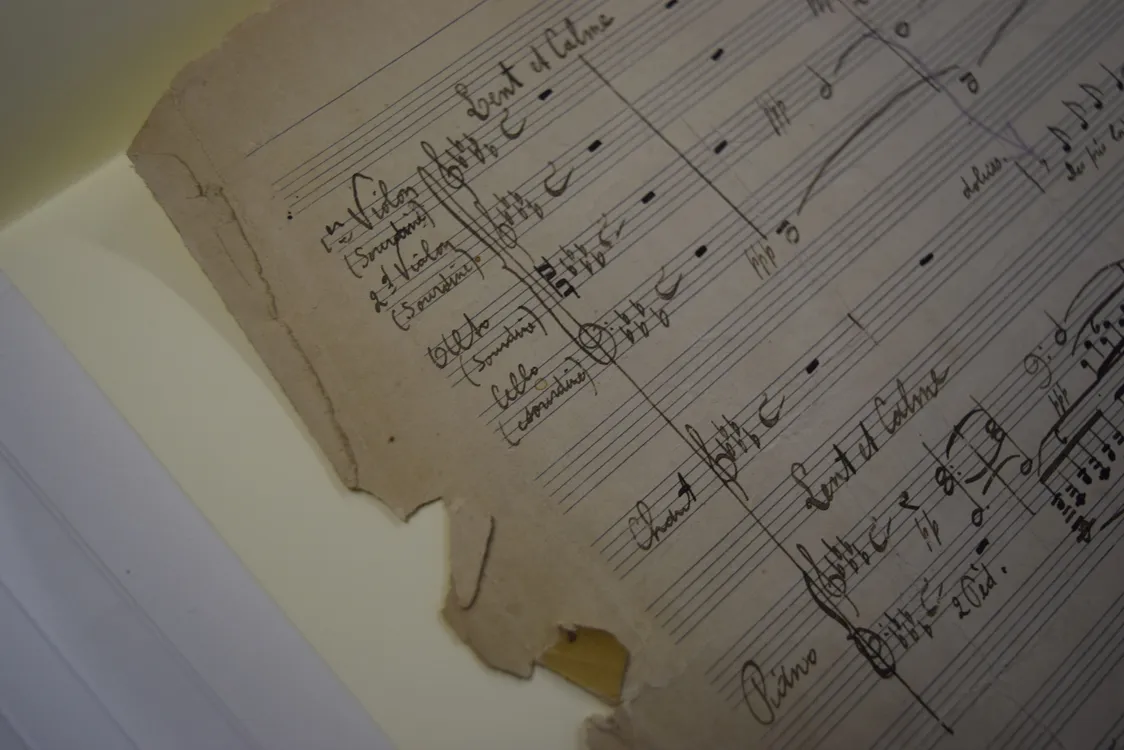 Lent et Calme
1er Violon
(Sourdine)
2d Violon
(Sourdine)
ppp
dolciss.
Alto
(Sourdine)
ppp
Cello
(Sourdine)
Chant
Lent et Calme
ppp
pp
2 Péd.
Piano